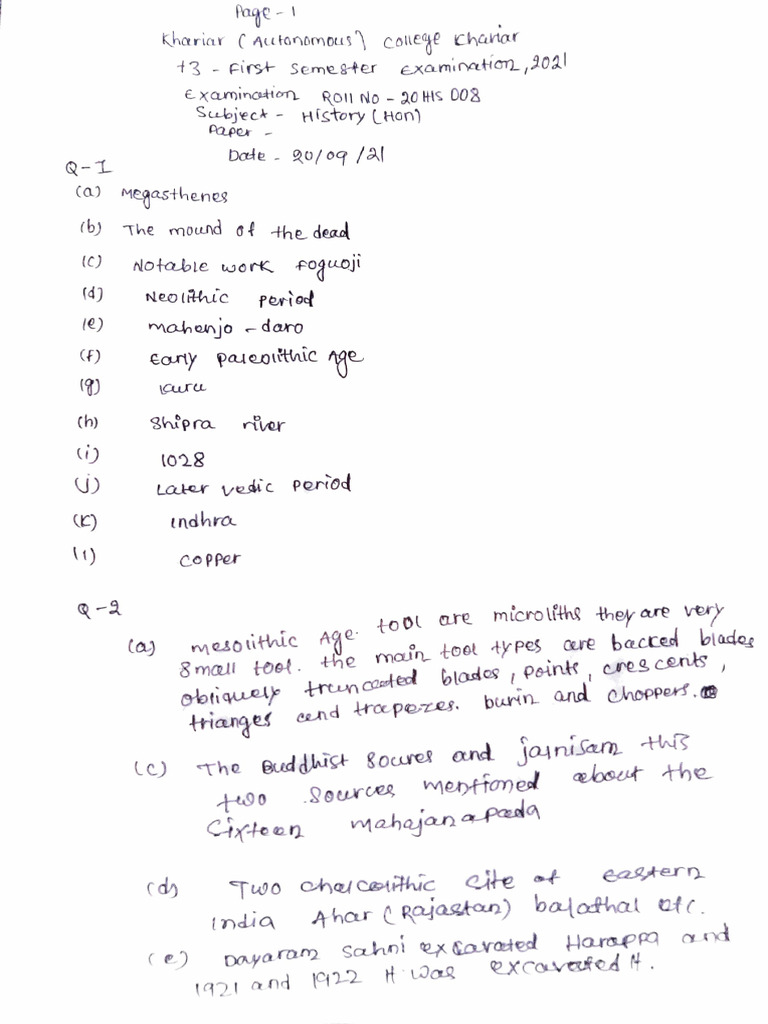 Page - 1
Khariar (Autonomous) College Khariar
+3 - First Semester Examination, 2021
Examination Roll No - 20 HIS 008
Subject - History (Hon)
Paper -
Date - 20/09/21
Q-I
(a) Megasthenes
(b) The mound of the dead
(c) Notable work foguoji
(d) Neolithic period
(e) mahenjo - daro
(f) Early paleolithic Age
(g) kuru
(h) Shipra river
(i) 1028
(j) Later vedic period
(k) indhra
(l) copper
Q-2
(a) mesolithic Age. tool are microliths they are very
small tool. the main tool types are backed blades
obliquely truncated blades, points, crescents,
trianges and trapezes. burin and choppers.
(c) The Buddhist soures and jainisam this
two sources mentioned about the
Sixteen mahajanapada
(d) Two chalcolithic site of eastern
india Ahar (Rajastan) balathal etc.
(e) Dayaram Sahni excavated Harappa and
1921 and 1922 It was excavated it.